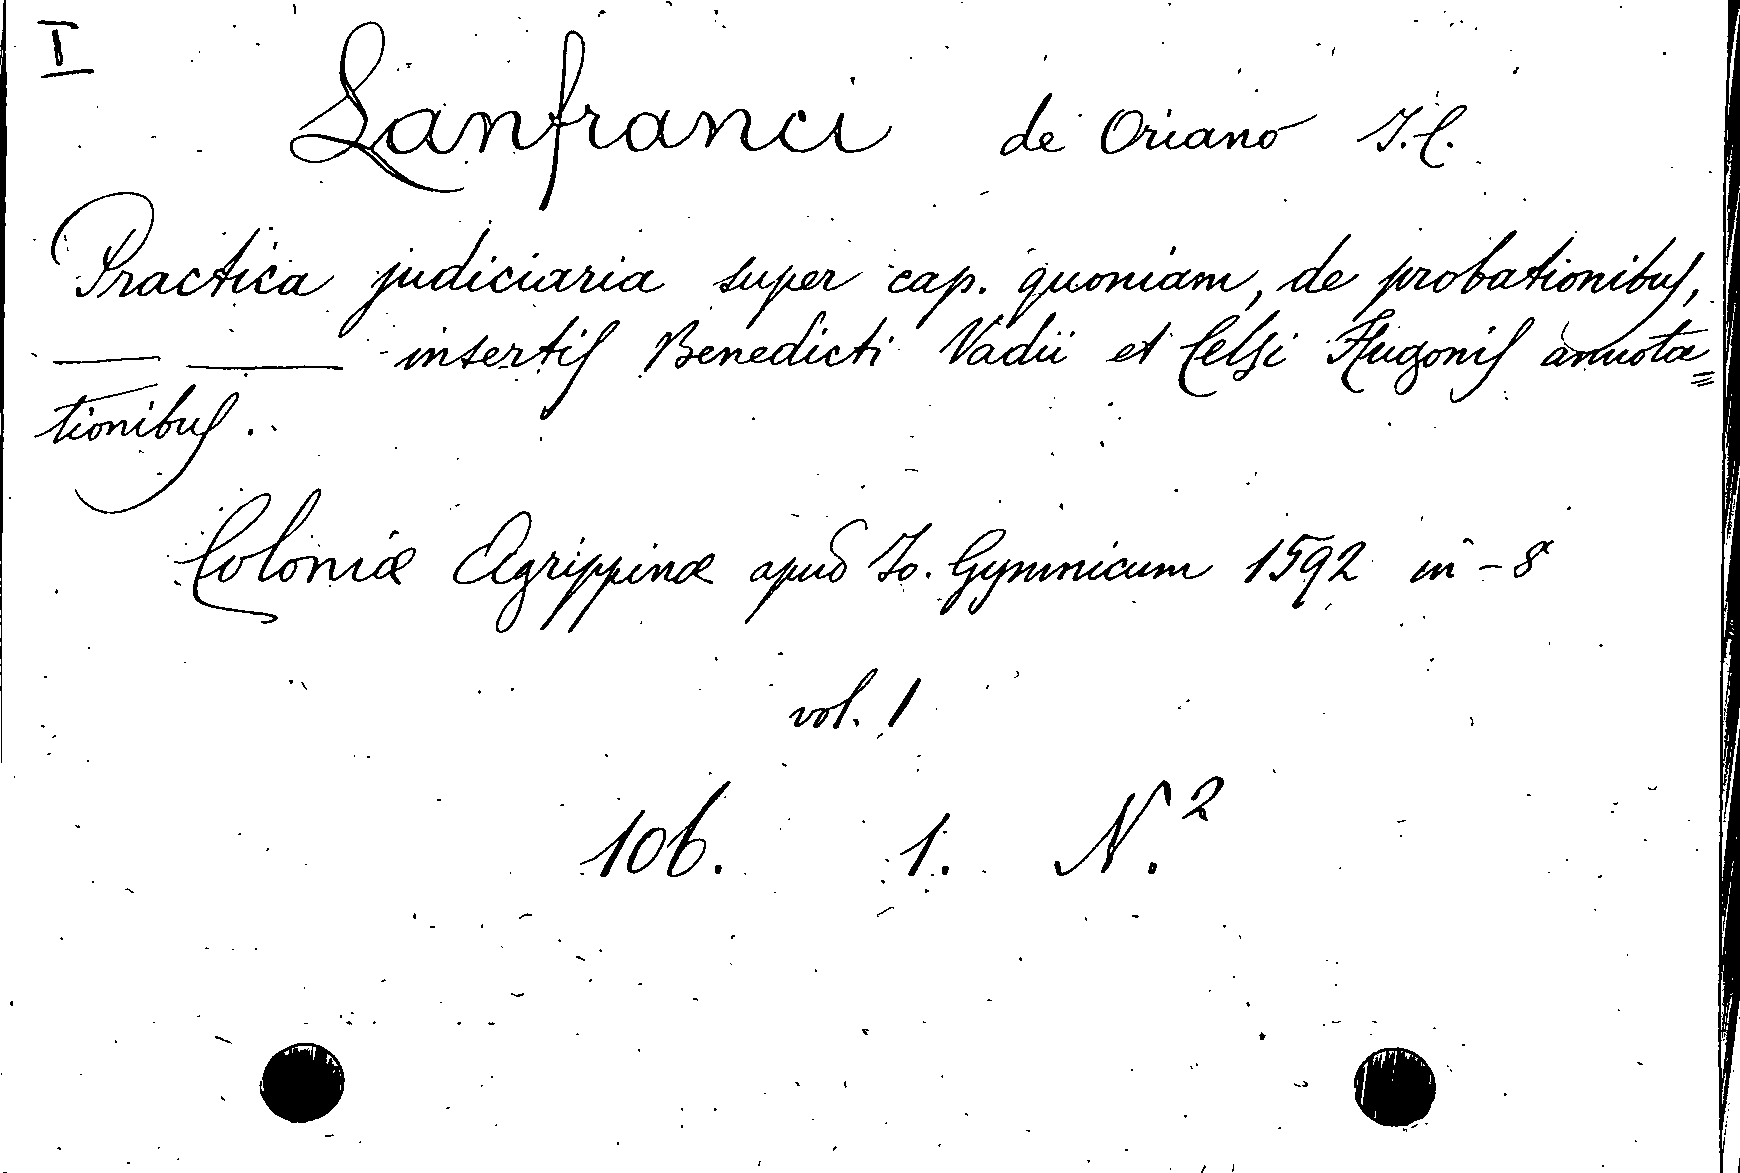 I
Lanfranci de Oriano J.C.
Practica judiciaria super cap. quoniam, de probationibus,
—— —— insertis Benedicti Vadii et Celsi Hugonis annota=
tionibus..
Coloniæ Agrippinæ apud Jo. Gymnicum 1592 in-8
vol. 1
106. 1. N.2